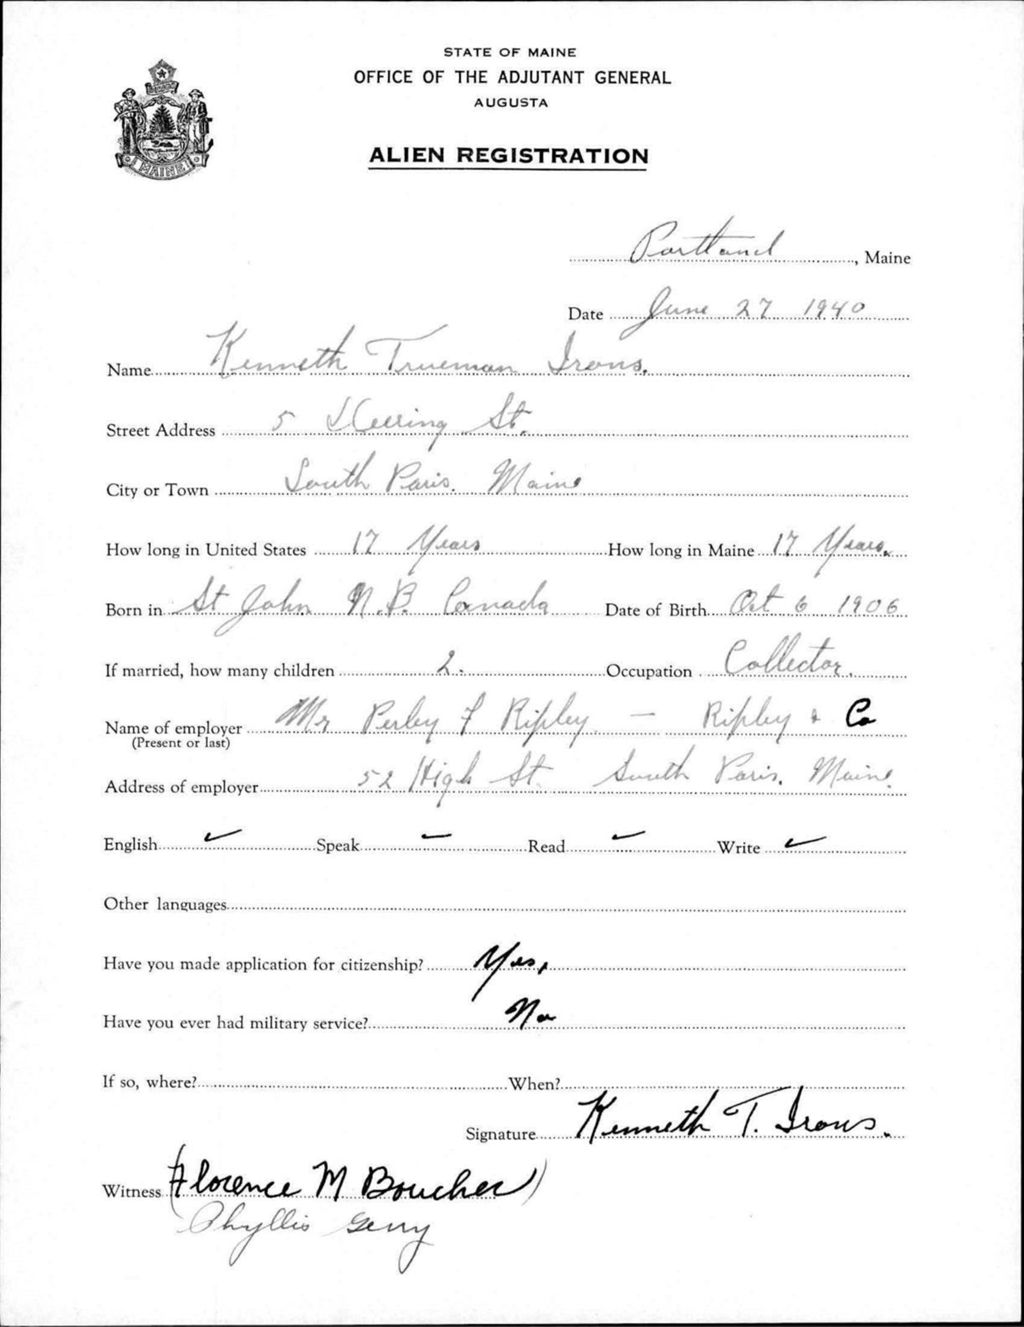 STATE OF MAINE
OFFICE OF THE ADJUTANT GENERAL
AUGUSTA
ALIEN REGISTRATION
MAINE
Portland, Maine
Date June 27 1940
Name Kenneth Trueman Irons.
Street Address 5 Deering St.
City or Town South Paris. Maine
How long in United States 17 Years How long in Maine 17 Years.
Born in St John N.B. Canada Date of Birth Oct 6 1906
If married, how many children 2. Occupation Collector.
Name of employer Mr Perley F Ripley - Ripley & Co
(Present or last)
Address of employer 52 High St. South Paris. Maine
English ✓ Speak ✓ Read ✓ Write ✓
Other languages
Have you made application for citizenship? Yes,
Have you ever had military service? No
If so, where? When?
Signature Kenneth T. Irons.
Witness (Florence M Boucher)
Phyllis Gerry